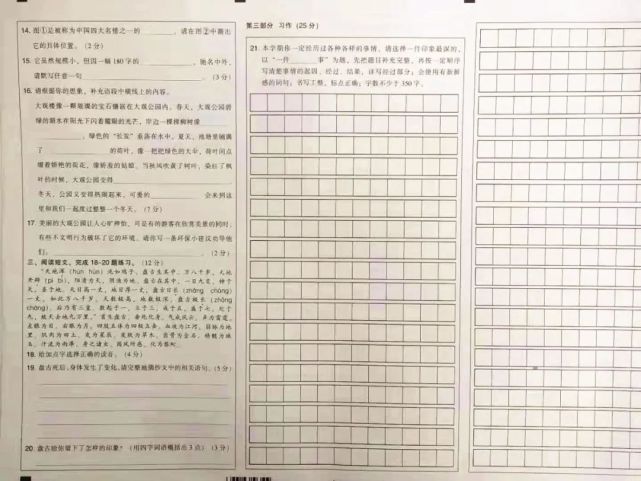 14. 图①是被称为中国四大名楼之一的________，请在图②中圈出
它的具体位置。（2分）
15. 它虽然规模小，但因一幅180字的________，驰名中外，
请默写任意一句________。（3分）
16. 请根据你的想象，补充语段中横线上的内容。
大观楼像一颗璀璨的宝石镶嵌在大观公园内。春天，大观公园碧
绿的湖水在阳光下闪着耀眼的光芒，岸边一棵棵柳树像________
________，绿色的“长发”垂落在水中。夏天，池塘里铺满
了________的荷叶，像一把把绿色的大伞，荷叶间点
缀着娇艳的荷花，像娇羞的姑娘。当秋风吹黄了树叶，染红了枫
叶的时候，大观公园变得________
冬天，公园又变得热闹起来，可爱的________会来到这
里和我们一起度过整整一个冬天。（7分）
17. 美丽的大观公园让人心旷神怡，可是有的游客在欣赏美景的同时，
有些不文明行为破坏了它的环境。请你写一条环保小建议劝导他
们。________（2分）
三、阅读短文，完成18-20题练习。（12分）
“天地浑（hún hùn）沌如鸡子，盘古生其中。万八千岁，天地
开辟（pì bì），阳清为天，阴浊为地。盘古在其中，一日九变，神于
天，圣于地。天日高一丈，地日厚一丈，盘古日长（zhǎng cháng）
一丈，如此万八千岁，天数极高，地数极深，盘古极长（zhǎng
cháng）。后乃有三皇。数起于一，立于三，成于五，盛于七，处于
九，故天去地九万里。”首生盘古，垂死化身，气成风云，声为雷霆，
左眼为日，右眼为月，四肢五体为四极五岳，血液为江河，筋脉为地
里，肌肉为田土，发为星辰，皮肤为草木，齿骨为金石，精髓为珠
玉，汗流为雨泽，身之诸虫，因风所感，化为黎甿。
18. 给加点字选择正确的读音。（4分）
19. 盘古死后，身体发生了变化，请完整地摘抄文中的相关语句。（5分）
20. 盘古给你留下了怎样的印象？（用四字词语概括出3点）（3分）
第三部分 习作（25分）
21. 本学期你一定经历过各种各样的事情，请选择一件印象最深的，
以“一件________事”为题，先把题目补充完整，再按一定顺序
写清楚事情的起因、经过、结果，详写经过部分；会使用有新鲜
感的词句；书写工整，标点正确；字数不少于350字。